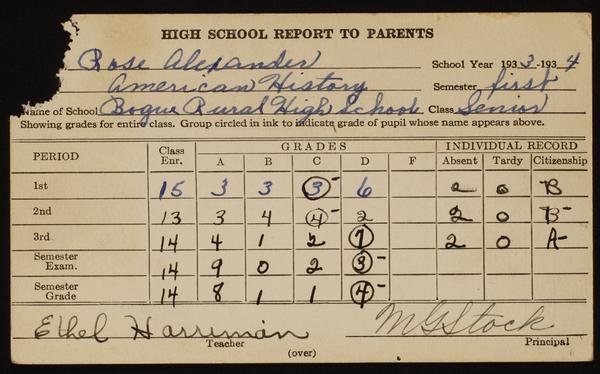 HIGH SCHOOL REPORT TO PARENTS
Rose Alexander School Year 1933-1934
American History Semester first
Name of School Bogue Rural High School Class Senior
Showing grades for entire class. Group circled in ink to indicate grade of pupil whose name appears above.
PERIOD Class Enr. GRADES INDIVIDUAL RECORD
A B C D F Absent Tardy Citizenship
1st 15 3 3 3- 6 2 0 B
2nd 13 3 4 4- 2 2 0 B-
3rd 14 4 1 2 7 2 0 A-
Semester Exam. 14 9 0 2 3-
Semester Grade 14 8 1 1 4-
Ethel Harriman MG Stock
Teacher Principal
(over)